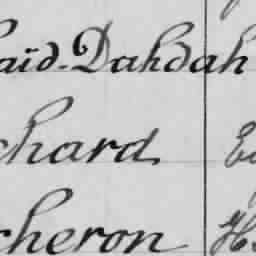 aïd-Dahdah
chard
cheron